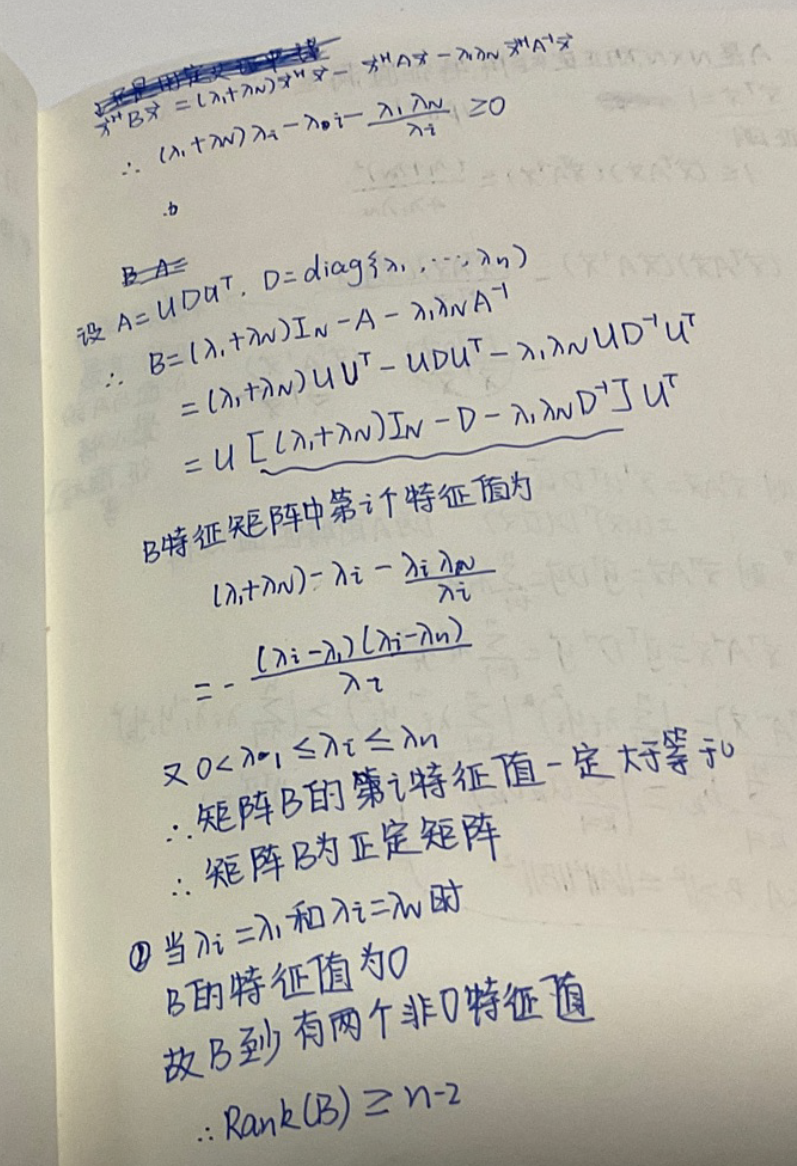 x⃗ᴴBx⃗ = (λ₁+λN)x⃗ᴴx⃗ - x⃗ᴴAx⃗ - λ₁λN x⃗ᴴA⁻¹x⃗
∴ (λ₁+λN)λi - λi - λ₁λN/λi ≥0
设 A=UDUᵀ, D=diag{λ₁,⋯,λn)
∴ B=(λ₁+λN)IN - A - λ₁λNA⁻¹
=(λ₁+λN)UUᵀ - UDUᵀ - λ₁λNUD⁻¹Uᵀ
=U[(λ₁+λN)IN - D - λ₁λND⁻¹]Uᵀ
B特征矩阵中第i个特征值为
(λ₁+λN)-λi - λiλN/λi
=-(λi-λ₁)(λi-λn)/λi
又0<λ₁≤λi≤λn
∴矩阵B的第i特征值一定大于等于0
∴矩阵B为正定矩阵
②当λi=λ₁和λi=λN时
B的特征值为0
故B至少有两个非0特征值
∴Rank(B)≥n-2